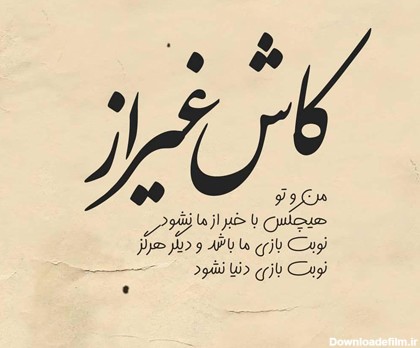 کاش غیر از
من و تو
هیچکس با خبر از ما نشود
نوبت بازی ما باشد و دیگر هرگز
نوبت بازی دنیا نشود
Downloadefilm.ir